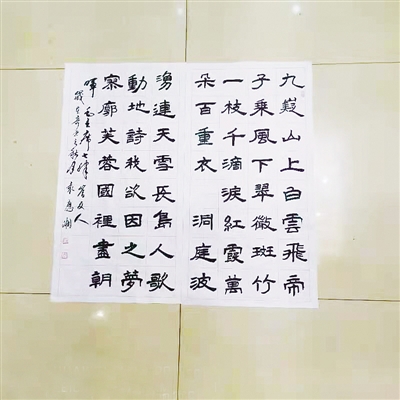 九嶷山上白雲飛帝
子乘風下翠微斑竹
一枝千滴淚紅霞萬
朵百重衣 洞庭波
湧連天雪長島人歌
動地詩我欲因之夢
寥廓芙蓉國裡盡朝
暉 毛主席七律答友人
歲在之秋月